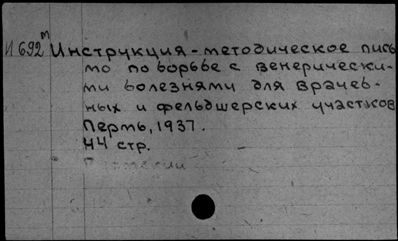 И 692м Инструкция-методическое пись
мо по борьбе с венерически-
ми болезнями для врачеб-
ных и фельдшерских участков
Пермь, 1937.
44 стр.